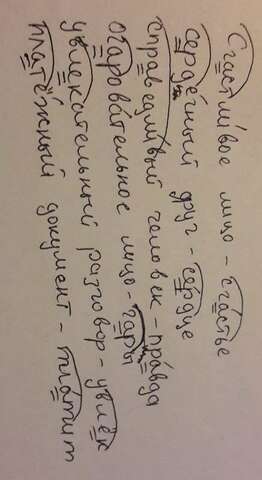 Счастливое лицо - счастье
сердечный друг - сердце
справедливый человек - правда
очаровательное лицо - чары
увлекательный разговор - увлёк
платёжный документ - платит